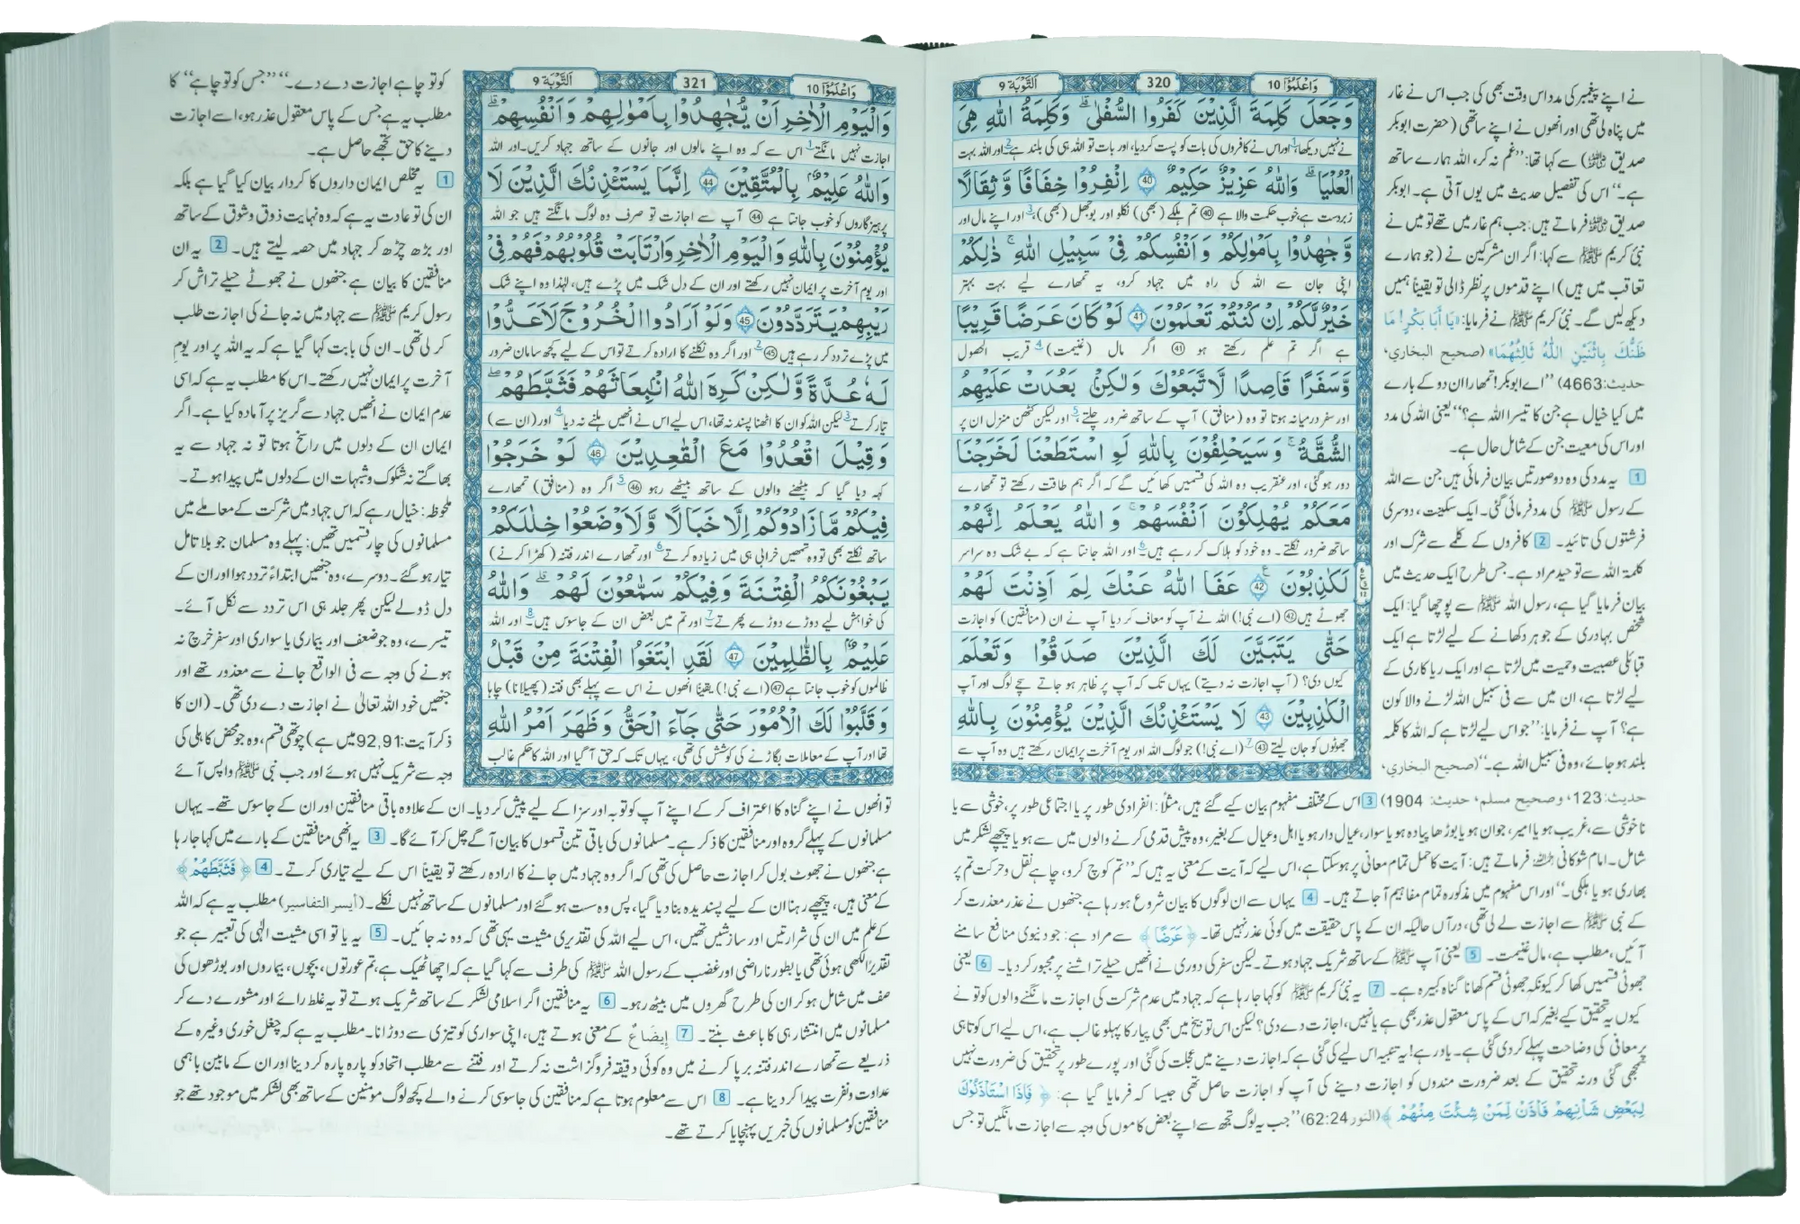 وَاعْلَمُوْٓا 10
320
اَلتَّوْبَة 9
وَجَعَلَ كَلِمَةَ الَّذِيْنَ كَفَرُوا السُّفْلٰى ۗ وَكَلِمَةُ اللّٰهِ هِىَ
نے نہیں دیکھا، اور اس نے کافروں کی بات کو پست کر دیا، اور بات تو اللہ ہی کی بلند ہے 2 اور اللہ بہت
الْعُلْيَا ۗ وَاللّٰهُ عَزِيْزٌ حَكِيْمٌ 40 اِنْفِرُوْا خِفَافًا وَّثِقَالًا
زبردست ہے خوب حکمت والا ہے 40 تم ہلکے (بھی) نکلو اور بوجھل (بھی)، 3 اور اپنے مال اور
وَّجَاهِدُوْا بِاَمْوَالِكُمْ وَاَنْفُسِكُمْ فِيْ سَبِيْلِ اللّٰهِ ۚ ذٰلِكُمْ
اپنی جان سے اللہ کی راہ میں جہاد کرو، یہ تمھارے لیے بہت بہتر
خَيْرٌ لَّكُمْ اِنْ كُنْتُمْ تَعْلَمُوْنَ 41 لَوْ كَانَ عَرَضًا قَرِيْبًا
ہے اگر تم علم رکھتے ہو 41 اگر مال (غنیمت) 4 قریب الحصول
وَّسَفَرًا قَاصِدًا لَّاتَّبَعُوْكَ وَلٰكِنْۢ بَعُدَتْ عَلَيْهِمُ
اور سفر درمیانہ ہوتا تو وہ (منافق) آپ کے ساتھ ضرور چلتے، 5 اور لیکن کٹھن منزل ان پر
الشُّقَّةُ ۚ وَسَيَحْلِفُوْنَ بِاللّٰهِ لَوِ اسْتَطَعْنَا لَخَرَجْنَا
دور ہوگئی، اور عنقریب وہ اللہ کی قسمیں کھائیں گے کہ اگر ہم طاقت رکھتے تو تمھارے
مَعَكُمْ يُهْلِكُوْنَ اَنْفُسَهُمْ ۚ وَاللّٰهُ يَعْلَمُ اِنَّهُمْ
ساتھ ضرور نکلتے۔ وہ خود کو ہلاک کر رہے ہیں 6 اور اللہ جانتا ہے کہ بے شک وہ سراسر
لَكٰذِبُوْنَ 42 عَفَا اللّٰهُ عَنْكَ لِمَ اَذِنْتَ لَهُمْ
جھوٹے ہیں 42 (اے نبی!) اللہ نے آپ کو معاف کر دیا آپ نے ان (منافقین) کو اجازت
حَتّٰى يَتَبَيَّنَ لَكَ الَّذِيْنَ صَدَقُوْا وَتَعْلَمَ
کیوں دی؟ (آپ اجازت نہ دیتے) یہاں تک کہ آپ پر ظاہر ہو جاتے سچے لوگ اور آپ
الْكٰذِبِيْنَ 43 لَا يَسْتَئْذِنُكَ الَّذِيْنَ يُؤْمِنُوْنَ بِاللّٰهِ
جھوٹوں کو جان لیتے 43 7 (اے نبی!) جو لوگ اللہ اور یوم آخرت پر ایمان رکھتے ہیں وہ آپ سے
نے اپنے پیغمبر کی مدد اس وقت بھی کی جب اس نے غار
میں پناہ لی تھی اور انھوں نے اپنے ساتھی (حضرت ابوبکر
صدیق) سے کہا تھا: ”غم نہ کر، اللہ ہمارے ساتھ
ہے۔“ اس کی تفصیل حدیث میں یوں آتی ہے۔ ابوبکر
صدیق فرماتے ہیں: جب ہم غار میں تھے تو میں نے
نبیٔ کریم ﷺ سے کہا: اگر ان مشرکین نے (جو ہمارے
تعاقب میں ہیں) اپنے قدموں پر نظر ڈالی تو یقیناً ہمیں
دیکھ لیں گے۔ نبیٔ کریم ﷺ نے فرمایا: «يَا أَبَا بَكْرٍ! مَا
ظَنُّكَ بِاثْنَيْنِ اللهُ ثَالِثُهُمَا» (صحيح البخاري،
حديث:4663) ”اے ابوبکر! تمھارا ان دو کے بارے
میں کیا خیال ہے جن کا تیسرا اللہ ہے؟“ یعنی اللہ کی مدد
اور اس کی معیت جن کے شامل حال ہے۔
1 یہ مدد کی وہ دو صورتیں بیان فرمائی ہیں جن سے اللہ
کے رسول ﷺ کی مدد فرمائی گئی۔ ایک سکینت، دوسری
فرشتوں کی تائید۔ 2 کافروں کے کلمے سے شرک اور
کلمۃ اللہ سے توحید مراد ہے۔ جس طرح ایک حدیث میں
بیان فرمایا گیا ہے، رسول اللہ ﷺ سے پوچھا گیا: ایک
شخص بہادری کے جوہر دکھانے کے لیے لڑتا ہے ایک
قبائلی عصبیت و حمیت میں لڑتا ہے اور ایک ریا کاری کے
لیے لڑتا ہے، ان میں سے فی سبیل اللہ لڑنے والا کون
ہے؟ آپ نے فرمایا: ”جو اس لیے لڑتا ہے کہ اللہ کا کلمہ
بلند ہو جائے، وہ فی سبیل اللہ ہے۔“ (صحيح البخاري،
حديث:123، وصحيح مسلم، حديث: 1904) 3 اس کے مختلف مفہوم بیان کیے گئے ہیں، مثلاً: انفرادی طور پر یا اجتماعی طور پر، خوشی سے یا
ناخوشی سے، غریب ہو یا امیر، جوان ہو یا بوڑھا پیادہ ہو یا سوار، عیال دار ہو یا اہل و عیال کے بغیر، وہ پیش قدمی کرنے والوں میں سے ہو یا پیچھے لشکر میں
شامل۔ امام شوکانی فرماتے ہیں: آیت کا حمل تمام معانی پر ہو سکتا ہے، اس لیے کہ آیت کے معنی یہ ہیں کہ ”تم کوچ کرو، چاہے نقل و حرکت تم پر
بھاری ہو یا ہلکی۔“ اور اس مفہوم میں مذکورہ تمام مفاہیم آ جاتے ہیں۔ 4 یہاں سے ان لوگوں کا بیان شروع ہو رہا ہے جنھوں نے عذر معذرت کر
کے نبی ﷺ سے اجازت لے لی تھی، درآں حالیکہ ان کے پاس حقیقت میں کوئی عذر نہیں تھا۔ ﴿عَرَضًا﴾ سے مراد ہے: جو دنیوی منافع سامنے
آئیں، مطلب ہے، مال غنیمت۔ 5 یعنی آپ ﷺ کے ساتھ شریک جہاد ہوتے۔ لیکن سفر کی دوری نے انھیں حیلے تراشنے پر مجبور کر دیا۔ 6 یعنی
جھوٹی قسمیں کھا کر کیونکہ جھوٹی قسم کھانا گناہ کبیرہ ہے۔ 7 یہ نبیٔ کریم ﷺ کو کہا جا رہا ہے کہ جہاد میں عدم شرکت کی اجازت مانگنے والوں کو تو نے
کیوں یہ تحقیق کیے بغیر کہ اس کے پاس معقول عذر بھی ہے یا نہیں، اجازت دے دی؟ لیکن اس توبیخ میں بھی پیار کا پہلو غالب ہے، اس لیے اس کوتاہی
پر معافی کی وضاحت پہلے کر دی گئی ہے۔ یاد رہے! یہ تنبیہ اس لیے کی گئی ہے کہ اجازت دینے میں عجلت کی گئی اور پورے طور پر تحقیق کی ضرورت نہیں
سمجھی گئی ورنہ تحقیق کے بعد ضرورت مندوں کو اجازت دینے کی آپ کو اجازت حاصل تھی جیسا کہ فرمایا گیا ہے: ﴿فَاِذَا اسْتَاْذَنُوْكَ
لِبَعْضِ شَاْنِهِمْ فَاْذَنْ لِّمَنْ شِئْتَ مِنْهُمْ﴾ (النور 62:24) ”جب یہ لوگ تجھ سے اپنے بعض کاموں کی وجہ سے اجازت مانگیں تو جس
وَاعْلَمُوْٓا 10
321
اَلتَّوْبَة 9
وَالْيَوْمِ الْاٰخِرِ اَنْ يُّجَاهِدُوْا بِاَمْوَالِهِمْ وَاَنْفُسِهِمْ ۗ
اجازت نہیں مانگتے 1 اس سے کہ وہ اپنے مالوں اور جانوں کے ساتھ جہاد کریں۔ اور اللہ
وَاللّٰهُ عَلِيْمٌۢ بِالْمُتَّقِيْنَ 44 اِنَّمَا يَسْتَئْذِنُكَ الَّذِيْنَ لَا
پرہیزگاروں کو خوب جانتا ہے 44 آپ سے اجازت تو صرف وہ لوگ مانگتے ہیں جو اللہ
يُؤْمِنُوْنَ بِاللّٰهِ وَالْيَوْمِ الْاٰخِرِ وَارْتَابَتْ قُلُوْبُهُمْ فَهُمْ فِيْ
اور یوم آخرت پر ایمان نہیں رکھتے اور ان کے دل شک میں پڑے ہیں، لہٰذا وہ اپنے شک
رَيْبِهِمْ يَتَرَدَّدُوْنَ 45 وَلَوْ اَرَادُوا الْخُرُوْجَ لَاَعَدُّوْا
میں پڑے تردد کر رہے ہیں 45 2 اور اگر وہ نکلنے کا ارادہ کرتے تو اس کے لیے کچھ سامان ضرور
لَهٗ عُدَّةً وَّلٰكِنْ كَرِهَ اللّٰهُ انْۢبِعَاثَهُمْ فَثَبَّطَهُمْ
تیار کرتے 3 لیکن اللہ کو ان کا اٹھنا پسند نہ تھا، اس لیے اس نے انھیں ہلنے نہ دیا 4 اور (ان سے)
وَقِيْلَ اقْعُدُوْا مَعَ الْقٰعِدِيْنَ 46 لَوْ خَرَجُوْا
کہہ دیا گیا کہ بیٹھنے والوں کے ساتھ بیٹھے رہو 46 5 اگر وہ (منافق) تمھارے
فِيْكُمْ مَّا زَادُوْكُمْ اِلَّا خَبَالًا وَّلَا۟اَوْضَعُوْا خِلٰلَكُمْ
ساتھ نکلتے بھی تو وہ تمھیں خرابی ہی میں زیادہ کرتے 6 اور تمھارے اندر فتنہ (کھڑا کرنے)
يَبْغُوْنَكُمُ الْفِتْنَةَ وَفِيْكُمْ سَمّٰعُوْنَ لَهُمْ ۗ وَاللّٰهُ
کی خواہش لیے دوڑے دوڑے پھرتے 7 اور تم میں بعض ان کے جاسوس ہیں 8 اور اللہ
عَلِيْمٌۢ بِالظّٰلِمِيْنَ 47 لَقَدِ ابْتَغَوُا الْفِتْنَةَ مِنْ قَبْلُ
ظالموں کو خوب جانتا ہے 47 (اے نبی!) یقیناً انھوں نے اس سے پہلے بھی فتنہ (پھیلانا) چاہا
وَقَلَّبُوْا لَكَ الْاُمُوْرَ حَتّٰى جَآءَ الْحَقُّ وَظَهَرَ اَمْرُ اللّٰهِ
تھا اور آپ کے معاملات بگاڑنے کی کوشش کی تھی، یہاں تک کہ حق آ گیا اور اللہ کا حکم غالب
کو تو چاہے اجازت دے دے۔“ ”جس کو تو چاہے“ کا
مطلب یہ ہے جس کے پاس معقول عذر ہو، اسے اجازت
دینے کا حق تجھے حاصل ہے۔
1 یہ مخلص ایمان داروں کا کردار بیان کیا گیا ہے بلکہ
ان کی تو عادت یہ ہے کہ وہ نہایت ذوق و شوق کے ساتھ
اور بڑھ چڑھ کر جہاد میں حصہ لیتے ہیں۔ 2 یہ ان
منافقین کا بیان ہے جنھوں نے جھوٹے حیلے تراش کر
رسول کریم ﷺ سے جہاد میں نہ جانے کی اجازت طلب
کر لی تھی۔ ان کی بابت کہا گیا ہے کہ یہ اللہ پر اور یومِ
آخرت پر ایمان نہیں رکھتے۔ اس کا مطلب یہ ہے کہ اسی
عدم ایمان نے انھیں جہاد سے گریز پر آمادہ کیا ہے۔ اگر
ایمان ان کے دلوں میں راسخ ہوتا تو نہ جہاد سے یہ
بھاگتے نہ شکوک و شبہات ان کے دلوں میں پیدا ہوتے۔
ملحوظہ: خیال رہے کہ اس جہاد میں شرکت کے معاملے میں
مسلمانوں کی چار قسمیں تھیں: پہلے وہ مسلمان جو بلا تامل
تیار ہو گئے۔ دوسرے، وہ جنھیں ابتداءً تردد ہوا اور ان کے
دل ڈولے لیکن پھر جلد ہی اس تردد سے نکل آئے۔
تیسرے، وہ جو ضعف اور بیماری یا سواری اور سفر خرچ نہ
ہونے کی وجہ سے فی الواقع جانے سے معذور تھے اور
جنھیں خود اللہ تعالیٰ نے اجازت دے دی تھی۔ (ان کا
ذکر آیت: 92,91 میں ہے) چوتھی قسم، وہ جو محض کاہلی کی
وجہ سے شریک نہیں ہوئے اور جب نبی ﷺ واپس آئے
تو انھوں نے اپنے گناہ کا اعتراف کر کے اپنے آپ کو توبہ اور سزا کے لیے پیش کر دیا۔ ان کے علاوہ باقی منافقین اور ان کے جاسوس تھے۔ یہاں
مسلمانوں کے پہلے گروہ اور منافقین کا ذکر ہے۔ مسلمانوں کی باقی تین قسموں کا بیان آگے چل کر آئے گا۔ 3 یہ انھی منافقین کے بارے میں کہا جا رہا
ہے جنھوں نے جھوٹ بول کر اجازت حاصل کی تھی کہ اگر وہ جہاد میں جانے کا ارادہ رکھتے تو یقیناً اس کے لیے تیاری کرتے۔ 4 ﴿فَثَبَّطَهُمْ﴾
کے معنی ہیں، پیچھے رہنا ان کے لیے پسندیدہ بنا دیا گیا، پس وہ سست ہو گئے اور مسلمانوں کے ساتھ نہیں نکلے۔ (أيسر التفاسير) مطلب یہ ہے کہ اللہ
کے علم میں ان کی شرارتیں اور سازشیں تھیں، اس لیے اللہ کی تقدیری مشیت یہی تھی کہ وہ نہ جائیں۔ 5 یہ یا تو اسی مشیت الٰہی کی تعبیر ہے جو
تقدیراً لکھی ہوئی تھی یا بطور ناراضی اور غضب کے رسول اللہ ﷺ کی طرف سے کہا گیا ہے کہ اچھا ٹھیک ہے، تم عورتوں، بچوں، بیماروں اور بوڑھوں کی
صف میں شامل ہو کر ان کی طرح گھروں میں بیٹھ رہو۔ 6 یہ منافقین اگر اسلامی لشکر کے ساتھ شریک ہوتے تو یہ غلط رائے اور مشورے دے کر
مسلمانوں میں انتشار ہی کا باعث بنتے۔ 7 إيضاع کے معنی ہوتے ہیں، اپنی سواری کو تیزی سے دوڑانا۔ مطلب یہ ہے کہ چغل خوری وغیرہ کے
ذریعے سے تمھارے اندر فتنہ برپا کرنے میں وہ کوئی دقیقہ فروگزاشت نہ کرتے اور فتنے سے مطلب اتحاد کو پارہ پارہ کر دینا اور ان کے مابین باہمی
عداوت و نفرت پیدا کر دینا ہے۔ 8 اس سے معلوم ہوتا ہے کہ منافقین کی جاسوسی کرنے والے کچھ لوگ مومنین کے ساتھ بھی لشکر میں موجود تھے جو
منافقین کو مسلمانوں کی خبریں پہنچایا کرتے تھے۔